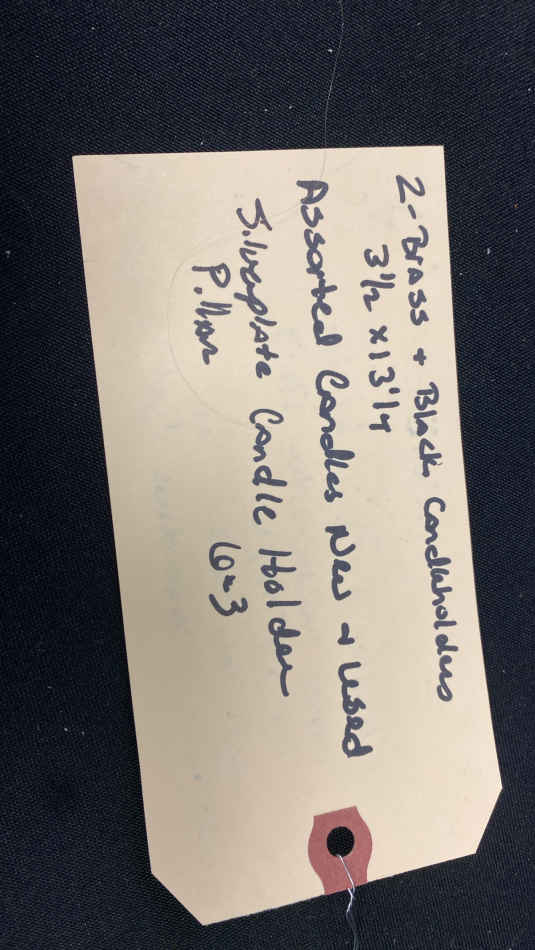 2-Brass + Black Candleholders
3 1/2 x 13 1/4
Assorted Candles New + Used
Silverplate Candle Holder
Pillar 6-3